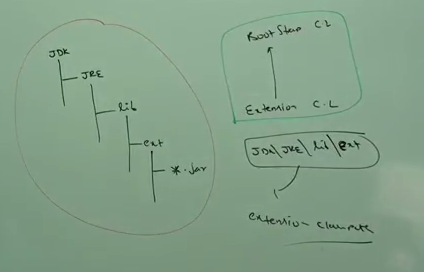 JDK
JRE
lib
ext
*.jar
BootStrap C.L
Extension C.L
JDK\JRE\lib\ext
extension classpath